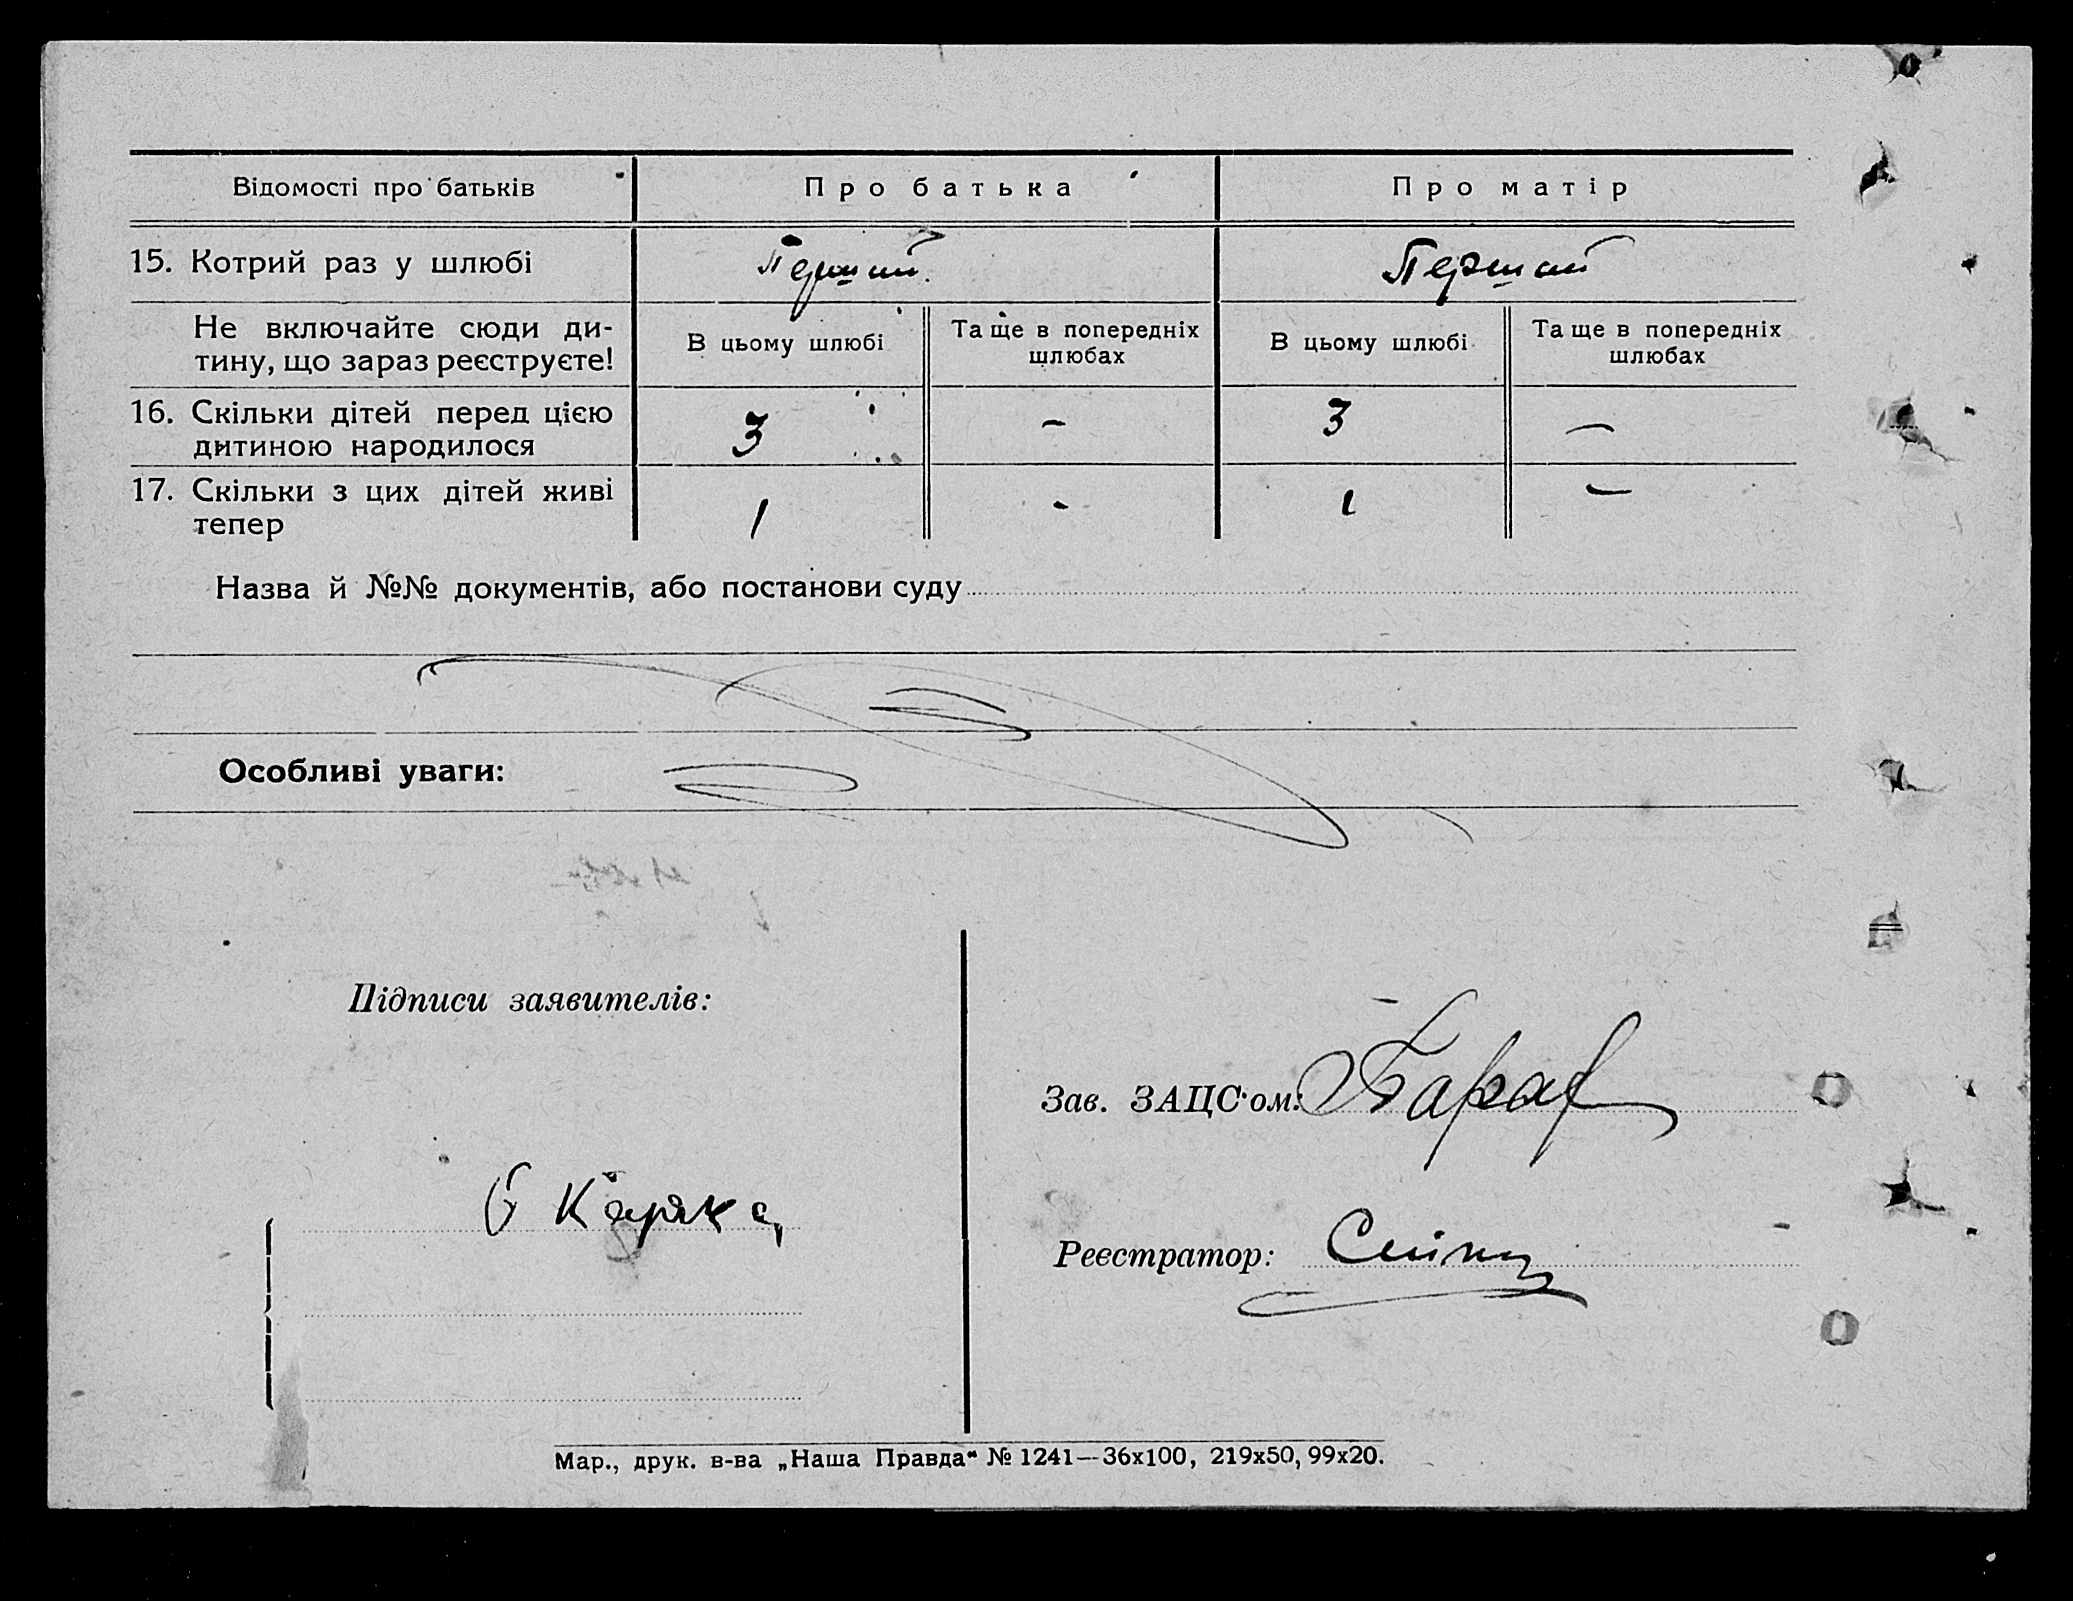 Відомості про батьків Про батька Про матір
15. Котрий раз у шлюбі Перший Перший
Не включайте сюди ди-
тину, що зараз реєструєте!
В цьому шлюбі Та ще в попередніх шлюбах В цьому шлюбі Та ще в попередніх шлюбах
16. Скільки дітей перед цією
дитиною народилося 3 – 3 –
17. Скільки з цих дітей живі
тепер 1 - 1 –
Назва й №№ документів, або постанови суду
Особливі уваги:
Підписи заявителів:
Зав. ЗАЦС'ом:
Реєстратор:
Мар., друк. в-ва „Наша Правда" № 1241—36x100, 219x50, 99x20.